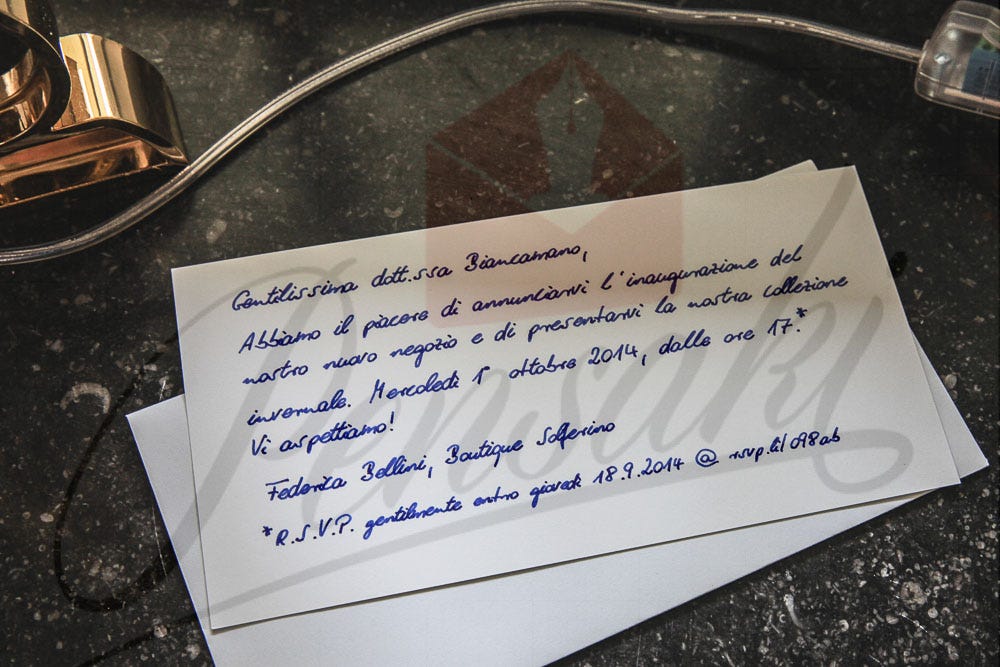 Gentilissima dott.ssa Biancamano,
Abbiamo il piacere di annunciarvi l'inaugurazione del
nostro nuovo negozio e di presentarvi la nostra collezione
invernale. Mercoledì 1° ottobre 2014, dalle ore 17.*
Vi aspettiamo!
Federica Bellini, Boutique Solferino
*R.S.V.P. gentilmente entro giovedì 18.9.2014 @ rsvp.lil/098ab
Pensaki